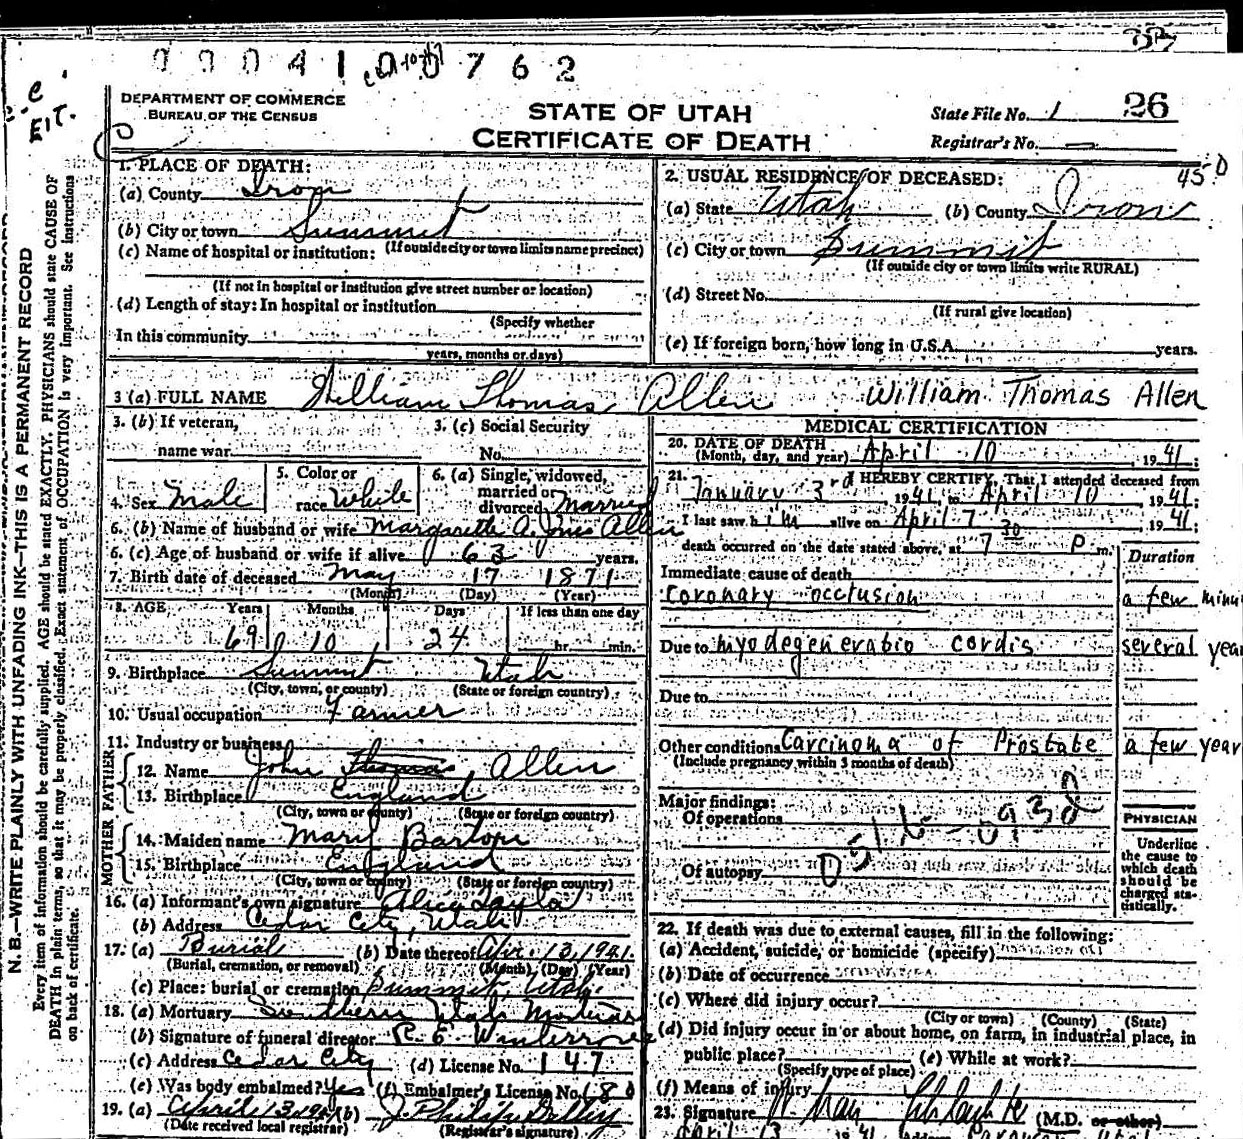 0 0 0 4 1 0 0 7 6 2
DEPARTMENT OF COMMERCE
BUREAU OF THE CENSUS
STATE OF UTAH
CERTIFICATE OF DEATH
State File No. 1 26
Registrar's No. —
N. B.—WRITE PLAINLY WITH UNFADING INK—THIS IS A PERMANENT RECORD
Every item of information should be carefully supplied. AGE should be stated EXACTLY. PHYSICIANS should state CAUSE OF
DEATH in plain terms, so that it may be properly classified. Exact statement of OCCUPATION is very important. See instructions
on back of certificate.
1. PLACE OF DEATH:
(a) County Iron
(b) City or town Summit
(If outside city or town limits name precinct)
(c) Name of hospital or institution:
(If not in hospital or institution give street number or location)
(d) Length of stay: In hospital or institution
(Specify whether
In this community
years, months or days)
2. USUAL RESIDENCE OF DECEASED: 450
(a) State Utah (b) County Iron
(c) City or town Summit
(If outside city or town limits write RURAL)
(d) Street No.
(If rural give location)
(e) If foreign born, how long in U.S.A. years.
3 (a) FULL NAME William Thomas Allen William Thomas Allen
3. (b) If veteran,
name war
3. (c) Social Security
No.
4. Sex Male
5. Color or
race White
6. (a) Single, widowed,
married or
divorced Married
6. (b) Name of husband or wife Margarette A. Jones Allen
6. (c) Age of husband or wife if alive 63 years.
7. Birth date of deceased May 17 1871
(Month) (Day) (Year)
8. AGE Years Months Days If less than one day
69 10 24 hr. min.
9. Birthplace Summit Utah
(City, town, or county) (State or foreign country)
10. Usual occupation Farmer
11. Industry or business
FATHER
12. Name John Thomas Allen
13. Birthplace England
(City, town or county) (State or foreign country)
MOTHER
14. Maiden name Mary Barton
15. Birthplace England
(City, town or county) (State or foreign country)
16. (a) Informant's own signature Alice Taylor
(b) Address Cedar City, Utah
17. (a) Burial (b) Date thereof Apr. 13, 1941
(Burial, cremation, or removal) (Month) (Day) (Year)
(c) Place: burial or cremation Summit, Utah
18. (a) Mortuary Southern Utah Mortuary
(b) Signature of funeral director R. E. Winterrose
(c) Address Cedar City (d) License No. 147
(e) Was body embalmed? Yes (f) Embalmer's License No. 180
19. (a) April 13 1941 (b)
(Date received local registrar) (Registrar's signature)
MEDICAL CERTIFICATION
20. DATE OF DEATH
(Month, day, and year) April 10, 1941;
21. I HEREBY CERTIFY, That I attended deceased from
January 3rd 1941 to April 10 1941;
I last saw him alive on April 7, 1941;
death occurred on the date stated above, at 7 30 P m.
Duration
Immediate cause of death
Coronary occlusion a few minu
Due to Myodegeneratio cordis several year
Due to
Other conditions Carcinoma of Prostate a few year
(Include pregnancy within 3 months of death)
Major findings:
Of operations
Of autopsy
PHYSICIAN
Underline
the cause to
which death
should be
charged sta-
tistically.
22. If death was due to external causes, fill in the following:
(a) Accident, suicide, or homicide (specify)
(b) Date of occurrence
(c) Where did injury occur?
(City or town) (County) (State)
(d) Did injury occur in or about home, on farm, in industrial place, in
public place? (e) While at work?
(Specify type of place)
(f) Means of injury
23. Signature (M.D. or other)
April 13 1941